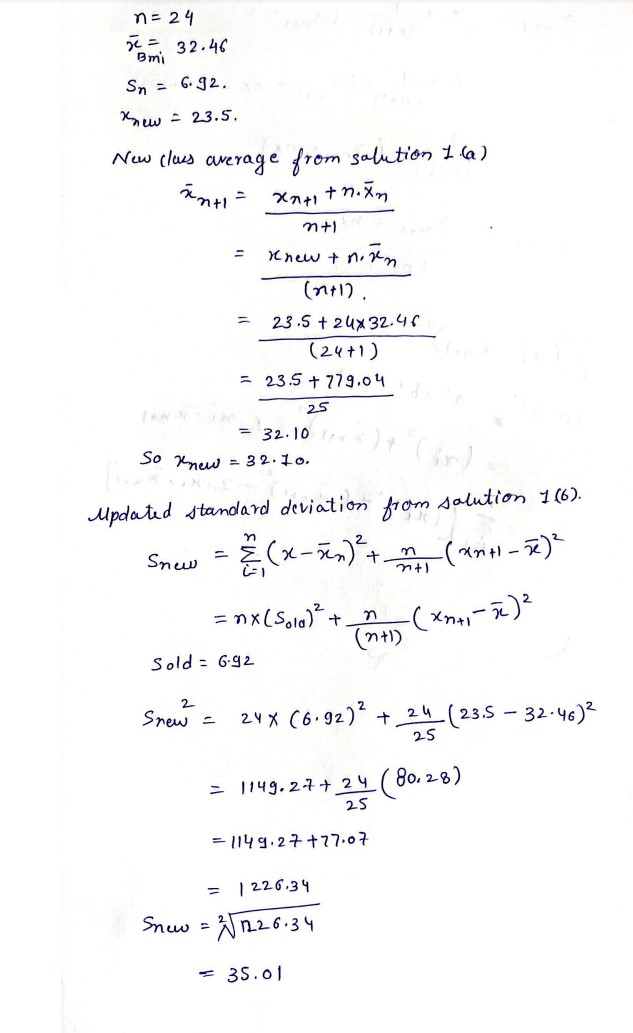 n = 24
x̄Bmi = 32.46
Sn = 6.92.
xnew = 23.5.
New class average from solution 1(a)
x̄n+1 = xn+1 + n.x̄n / n+1
= xnew + n.x̄n / (n+1).
= 23.5 + 24x32.46 / (24+1)
= 23.5 + 779.04 / 25
= 32.10
So xnew = 32.10.
Updated standard deviation from solution 1(b).
Snew = Σ_{i=1}^{n} (x - x̄n)² + n/n+1 (xn+1 - x̄)²
= nx(Sold)² + n/(n+1) (xn+1 - x̄)²
Sold = 6.92
Snew² = 24 x (6.92)² + 24/25 (23.5 - 32.46)²
= 1149.27 + 24/25 (80.28)
= 1149.27 + 77.07
= 1226.34
Snew = ²√1226.34
= 35.01